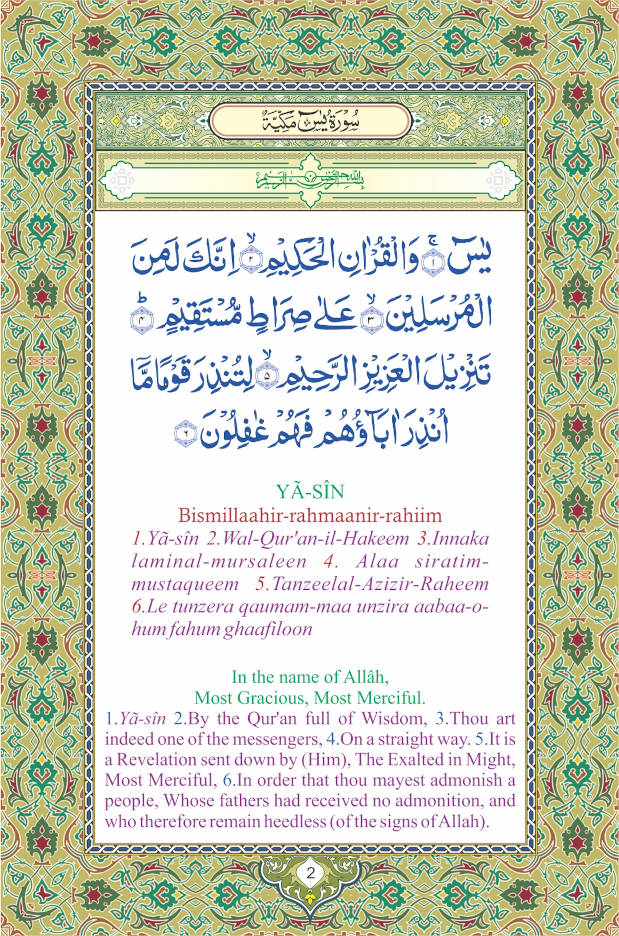 سُوْرَةُ يٰسٓ مَكِّيَّةٌ
بِسْمِ اللهِ الرَّحْمٰنِ الرَّحِيْمِ
يٰسٓ ۚ﴿۱﴾ وَالْقُرْاٰنِ الْحَكِيْمِ ۙ﴿۲﴾ اِنَّكَ لَمِنَ
الْمُرْسَلِيْنَ ۙ﴿۳﴾ عَلٰى صِرَاطٍ مُّسْتَقِيْمٍ ؕ﴿۴﴾
تَنْزِيْلَ الْعَزِيْزِ الرَّحِيْمِ ۙ﴿۵﴾ لِتُنْذِرَ قَوْمًا مَّاۤ
اُنْذِرَ اٰبَآؤُهُمْ فَهُمْ غٰفِلُوْنَ ﴿۶﴾
YÃ-SÎN
Bismillaahir-rahmaanir-rahiim
1.Yã-sîn 2.Wal-Qur'an-il-Hakeem 3.Innaka
laminal-mursaleen 4. Alaa siratim-
mustaqueem 5.Tanzeelal-Azizir-Raheem
6.Le tunzera qaumam-maa unzira aabaa-o-
hum fahum ghaafiloon
In the name of Allâh,
Most Gracious, Most Merciful.
1.Yã-sîn 2.By the Qur'an full of Wisdom, 3.Thou art
indeed one of the messengers, 4.On a straight way. 5.It is
a Revelation sent down by (Him), The Exalted in Might,
Most Merciful, 6.In order that thou mayest admonish a
people, Whose fathers had received no admonition, and
who therefore remain heedless (of the signs of Allah).
2